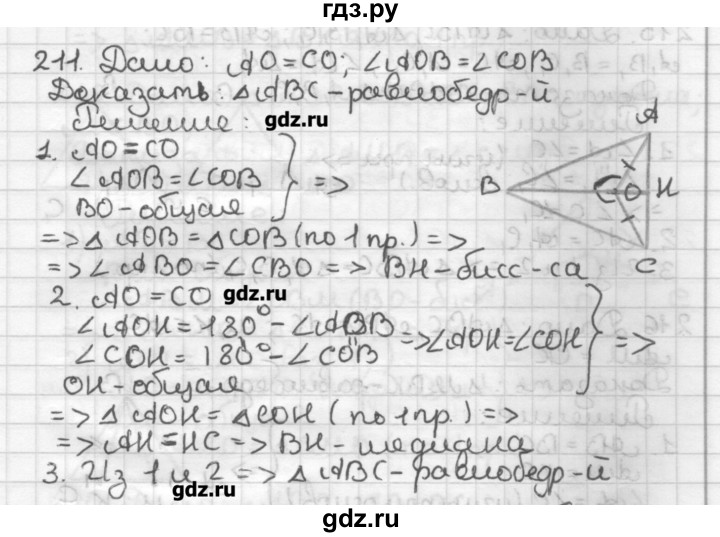 гдз.ру
211. Дано: AO=CO; ∠AOB=∠COB
Доказать: △ABC-равнобедр-й
Решение: gdz.ru
1. AO=CO
∠AOB=∠COB
BO-общая
=>
A
B
O
H
C
=>△AOB=△COB (по 1 пр.) =>
=>∠ABO=∠CBO=>BH-бисс-са
2. AO=CO gdz.ru
∠AOH=180°-∠AOB
∠COH=180°-∠COB
=>∠AOH=∠COH
=>
OH-общая
=>△AOH=△COH (по 1 пр.) =>
=>AH=HC=>BH-медиана
3. Из 1 и 2 => △ABC-равнобедр-й
gdz.ru
gdz.ru